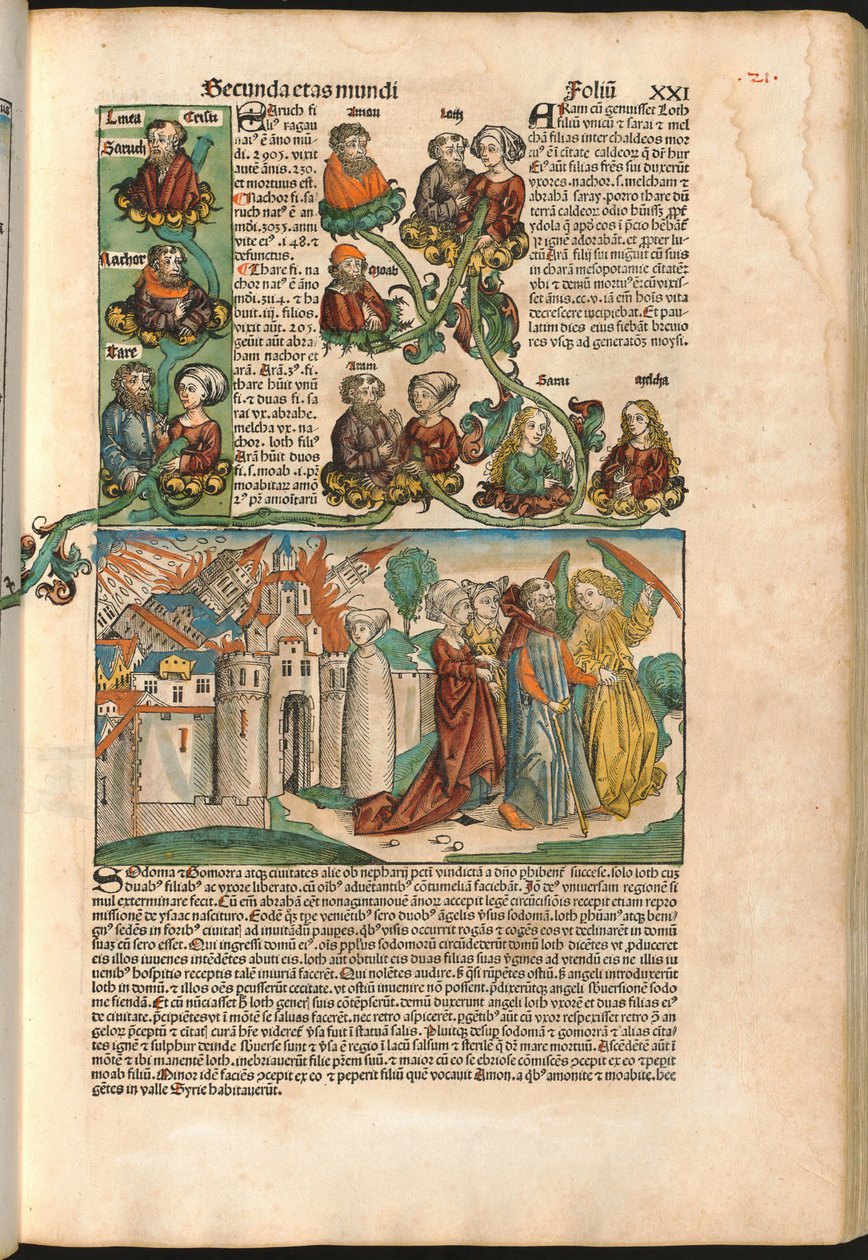 Secunda etas mundi
Foliū XXI
.21.
Linea Cristi
Saruch
Nachor
Tare
SAruch fi
liꝰ ragau
natꝰ ē āno mū-
di. 2905. vixit
autē ānis. 230.
et mortuus est.
Nachor fi. sa-
ruch natꝰ ē an
mōi. 3035. anni
vite eiꝰ. 148. ⁊
defunctus.
Thare fi. na
chor natꝰ ē āno
mōi. 3114. ⁊ ha
buit. iij. filios.
vixit aūt. 205.
geūit aūt abra/
ham nachor et
arā. Arā. 3ꝰ. fi.
thare hūit vnū
fi. ⁊ duas fi. sa
rai vx. abrahe.
melcha vx. na-
chor. loth filiꝰ
Arā hūit duos
fi. s. moab .i. pr̄
moabitarꝝ amō
Amon
Loth
Moab
Aram
Sarai
Melcha
ARam cū genuisset Loth
filiū vnicū ⁊ sarai ⁊ mel
chā filias inter chaldeos mor
tuꝰ ē ī ciītate caldeoꝝ q̄ dr̄ hur
Eiꝰ aūt filias fr̄es sui duxerūt
vxores. nachor. s. melcham ⁊
abrahā saray. porro thare dū
terrā caldeoꝝ odio hūisset ꝓpt̄
ydola q̄ apd̄ eos ī p̄cio hēbāt̄
⁊ ignē adorabāt. et ꝓpter lu-
ctū Arā filij sui migūit cū suis
in charā mesopotamie ciītatē:
vbi ⁊ demū mortuꝰ ē: cū vixis-
set ānis. cc. v. iā em̄ hoīs vita
decrescere incipiebat. Et pau-
latim dies eius fiebāt breuio
res vsq̄ ad generatōꝫ moysi.
SOdoma ⁊ Gomorra atqꝫ ciuitates alie ob nephariꝫ pctī vindictā a dn̄o ꝑhibent᷑ succēse. solo loth cuꝫ
duabꝰ filiabꝰ ac vxore liberato. cū oībꝰ aduētantibꝰ cōtumeliā faciebāt. Iō dēꝰ vniuersam regionē si
mul exterminare fecit. Cū em̄ abrahā eēt nonagintanouē ānoꝝ accepit legē circūcisiōis recepit etiam repro
missionē de ysaac nascituro. Eodē q̄ꝫ tp̄e veniētibꝰ sero duobꝰ āgelis v̄sus sodomā. loth ꝑhūanꝰ atqꝫ beni/
gnꝰ sedēs in foribꝰ ciuitat᷒ ad inuitādū pauꝑes. q̄bꝰ visis occurrit rogās ⁊ cogēs eos vt declinarēt in domū
suaꝫ cū sero esset. Qui ingressi domū eiꝰ. oīs ppl̄us sodomorū circūdederūt domū loth dicētes vt ꝓduceret
eis illos iuuenes intēdētes abuti eis. loth aūt obtulit eis duas filias suas v̄gines ad vtendū eis ne illis iu
uenibꝰ hospitio receptis talē iniuriā facerēt. Qui nolētes audire. sꝫ q̄si rūpētes ostiū. sꝫ angeli introduxerūt
loth in domū. ⁊ illos oēs ꝑcusserūt cecitate. vt ostiū inuenire nō possent. p̄dixerūtqꝫ angeli sb̄uersionē sodo
me fiendā. Et cū nūciasset h̄ loth generꝭ suis cōtēpserūt. demū duxerunt angeli loth vxorē et duas filias eiꝰ
de ciuitate. p̄cipiētes vt ī mōtē se saluas facerēt. nec retro aspicerēt. ꝑgētibꝰ aūt cū vxor respexisset retro ꝯ an
geloꝝ p̄ceptū ⁊ ciītat᷒ curā hr̄e videret᷑ v̄sa fuit ī statuā salis. Pluitqꝫ desuꝑ sodomā ⁊ gomorrā ⁊ alias cīta/
tes ignē ⁊ sulphur deinde sb̄uerse sunt ⁊ v̄sa ē regio ī lacū salsum ⁊ sterilē q̄ dr̄ mare mortuū. Ascēdēte aūt ī
mōtē ⁊ ibi manente loth. inebriauerūt filie pr̄em suū. ⁊ maior cū eo se ebriose cōmiscēs ꝯcepit ex eo ⁊ peꝑit
moab filiū. Minor idē faciēs ꝯcepit ex eo ⁊ peperit filiū quē vocauit Amon. a q̄bꝰ amonite ⁊ moabite. hee
gētes in valle Syrie habitauerūt.